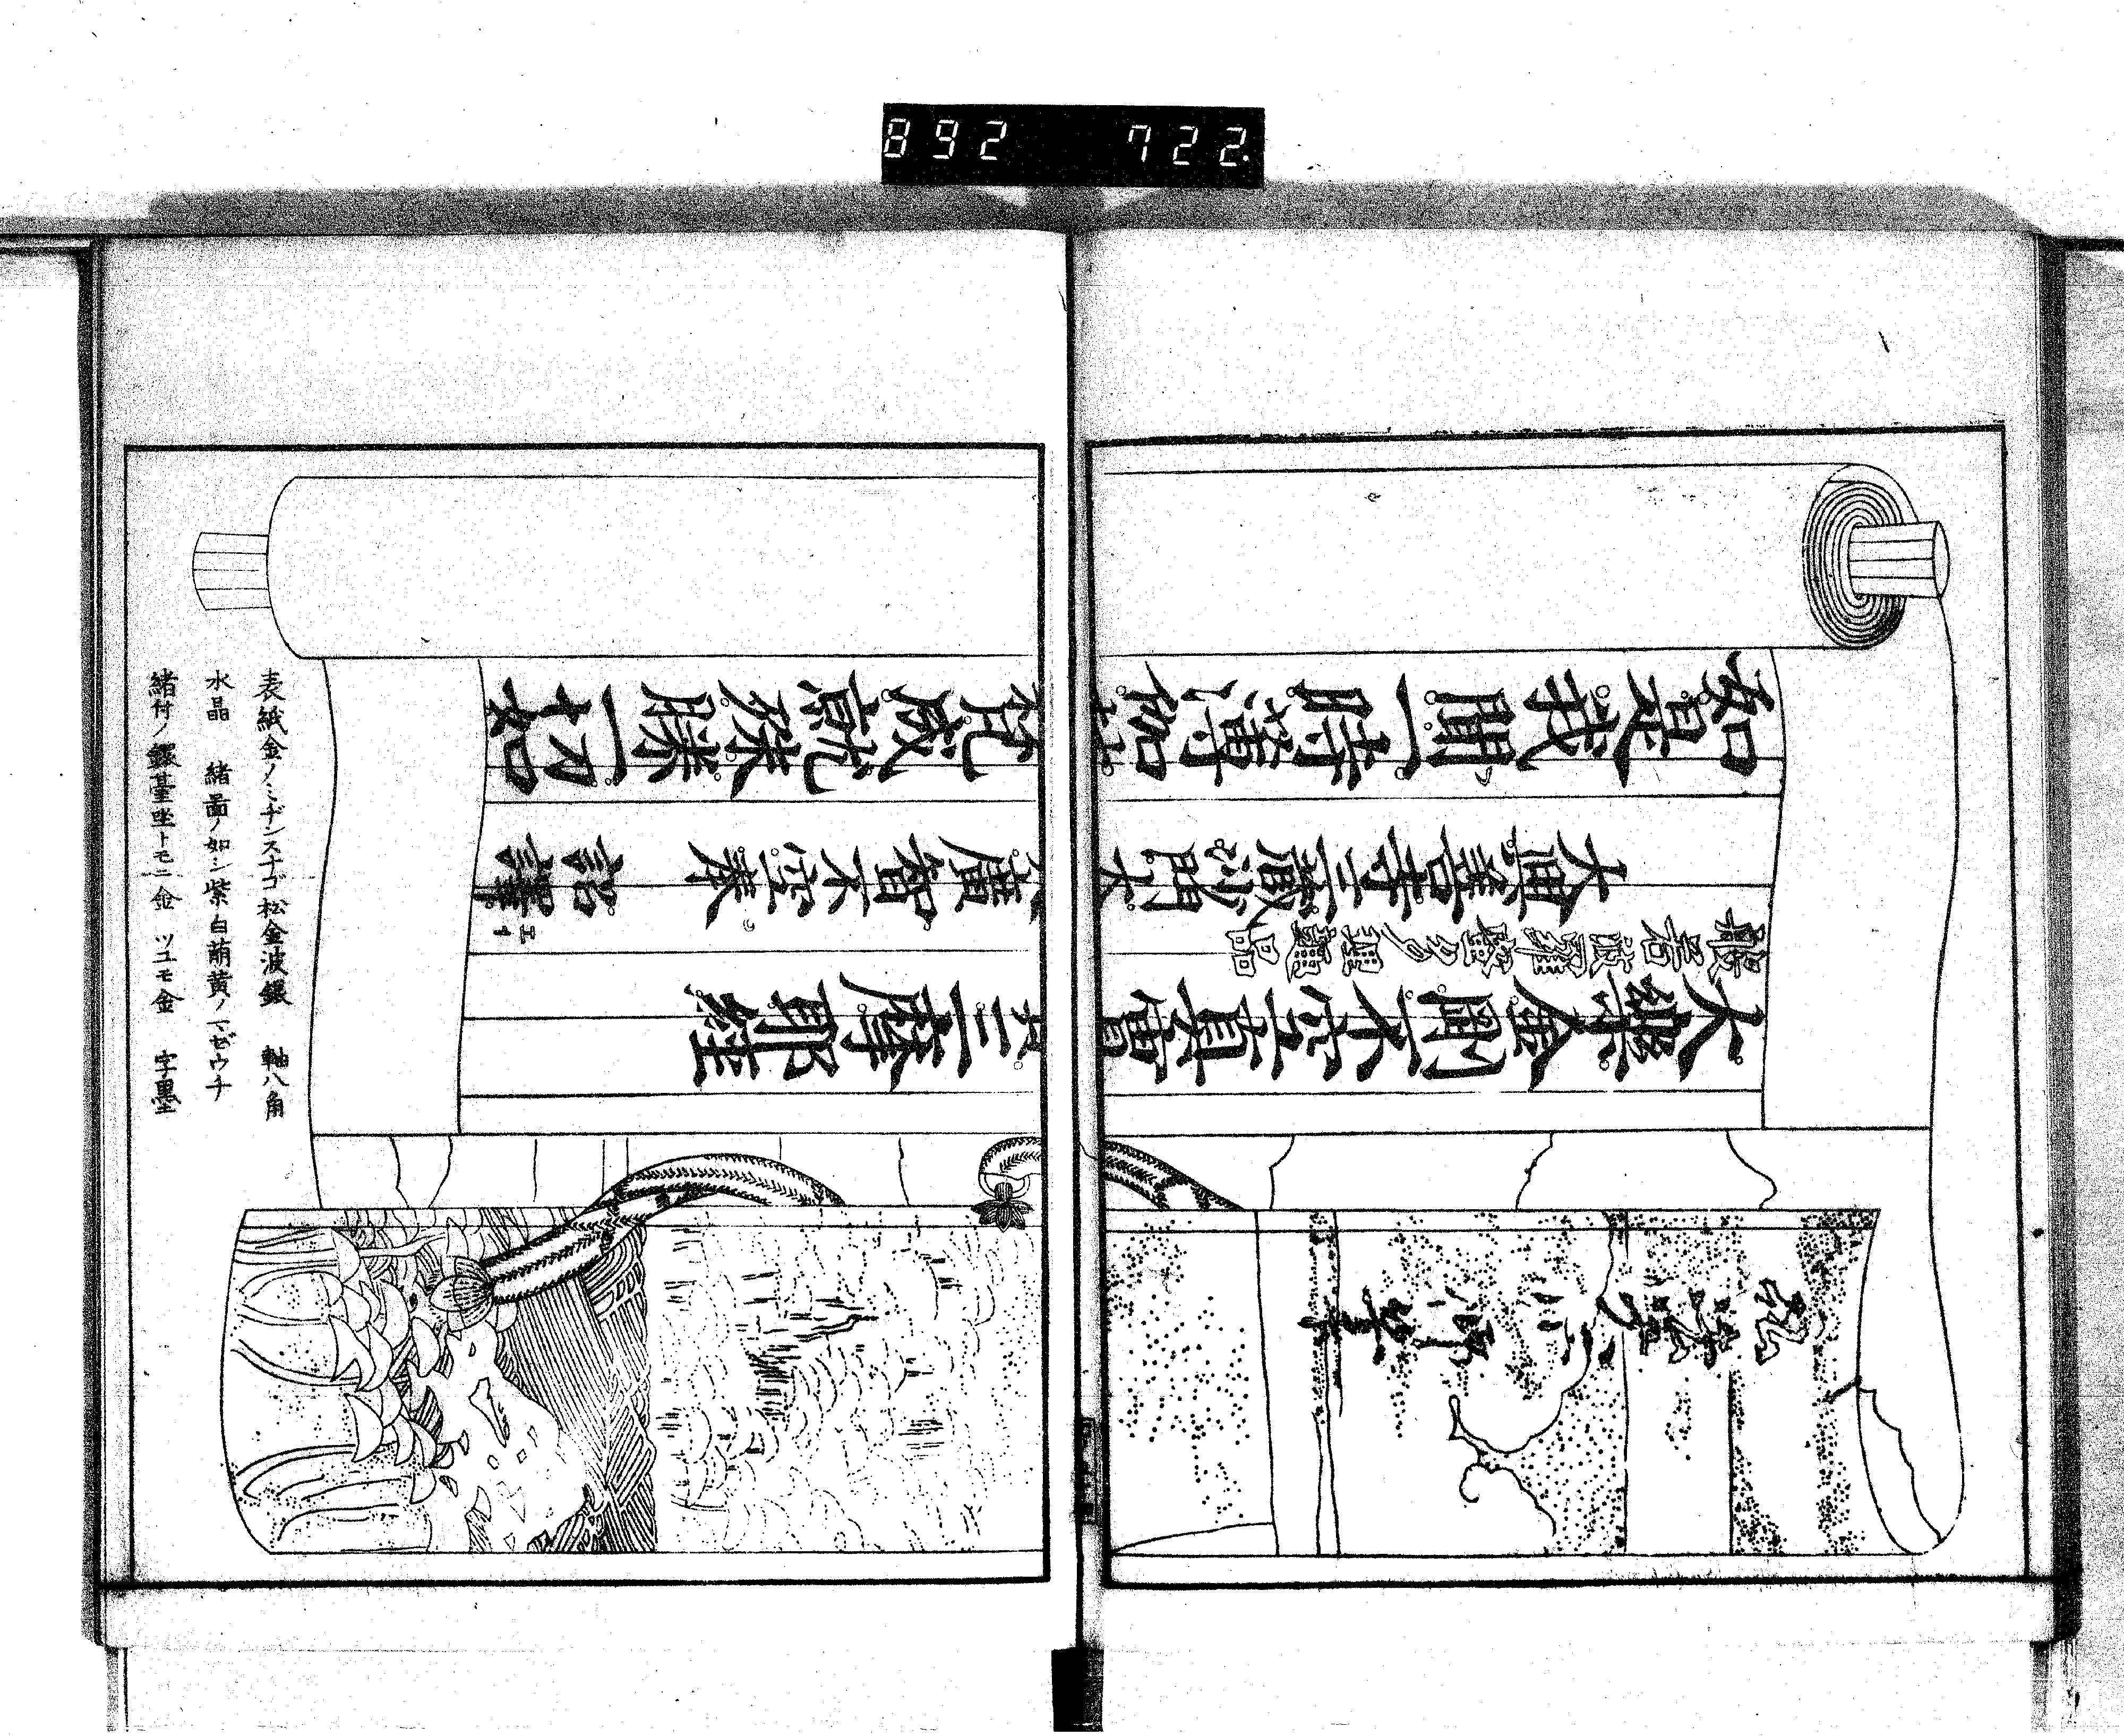 892 722.
大樂金剛不空真實三摩耶經
般若波羅蜜多理趣品
大興善寺三藏沙門大廣智不空奉 詔譯
如是我聞一時薄伽梵成就殊勝一切如
表紙金ノミヂンスナゴ松金波銀 軸八角
水晶 緒圖ノ如シ紫白萌黄ノ ゼウチ
緒付ノ鐶臺坐トモニ金 ツユモ金 字墨